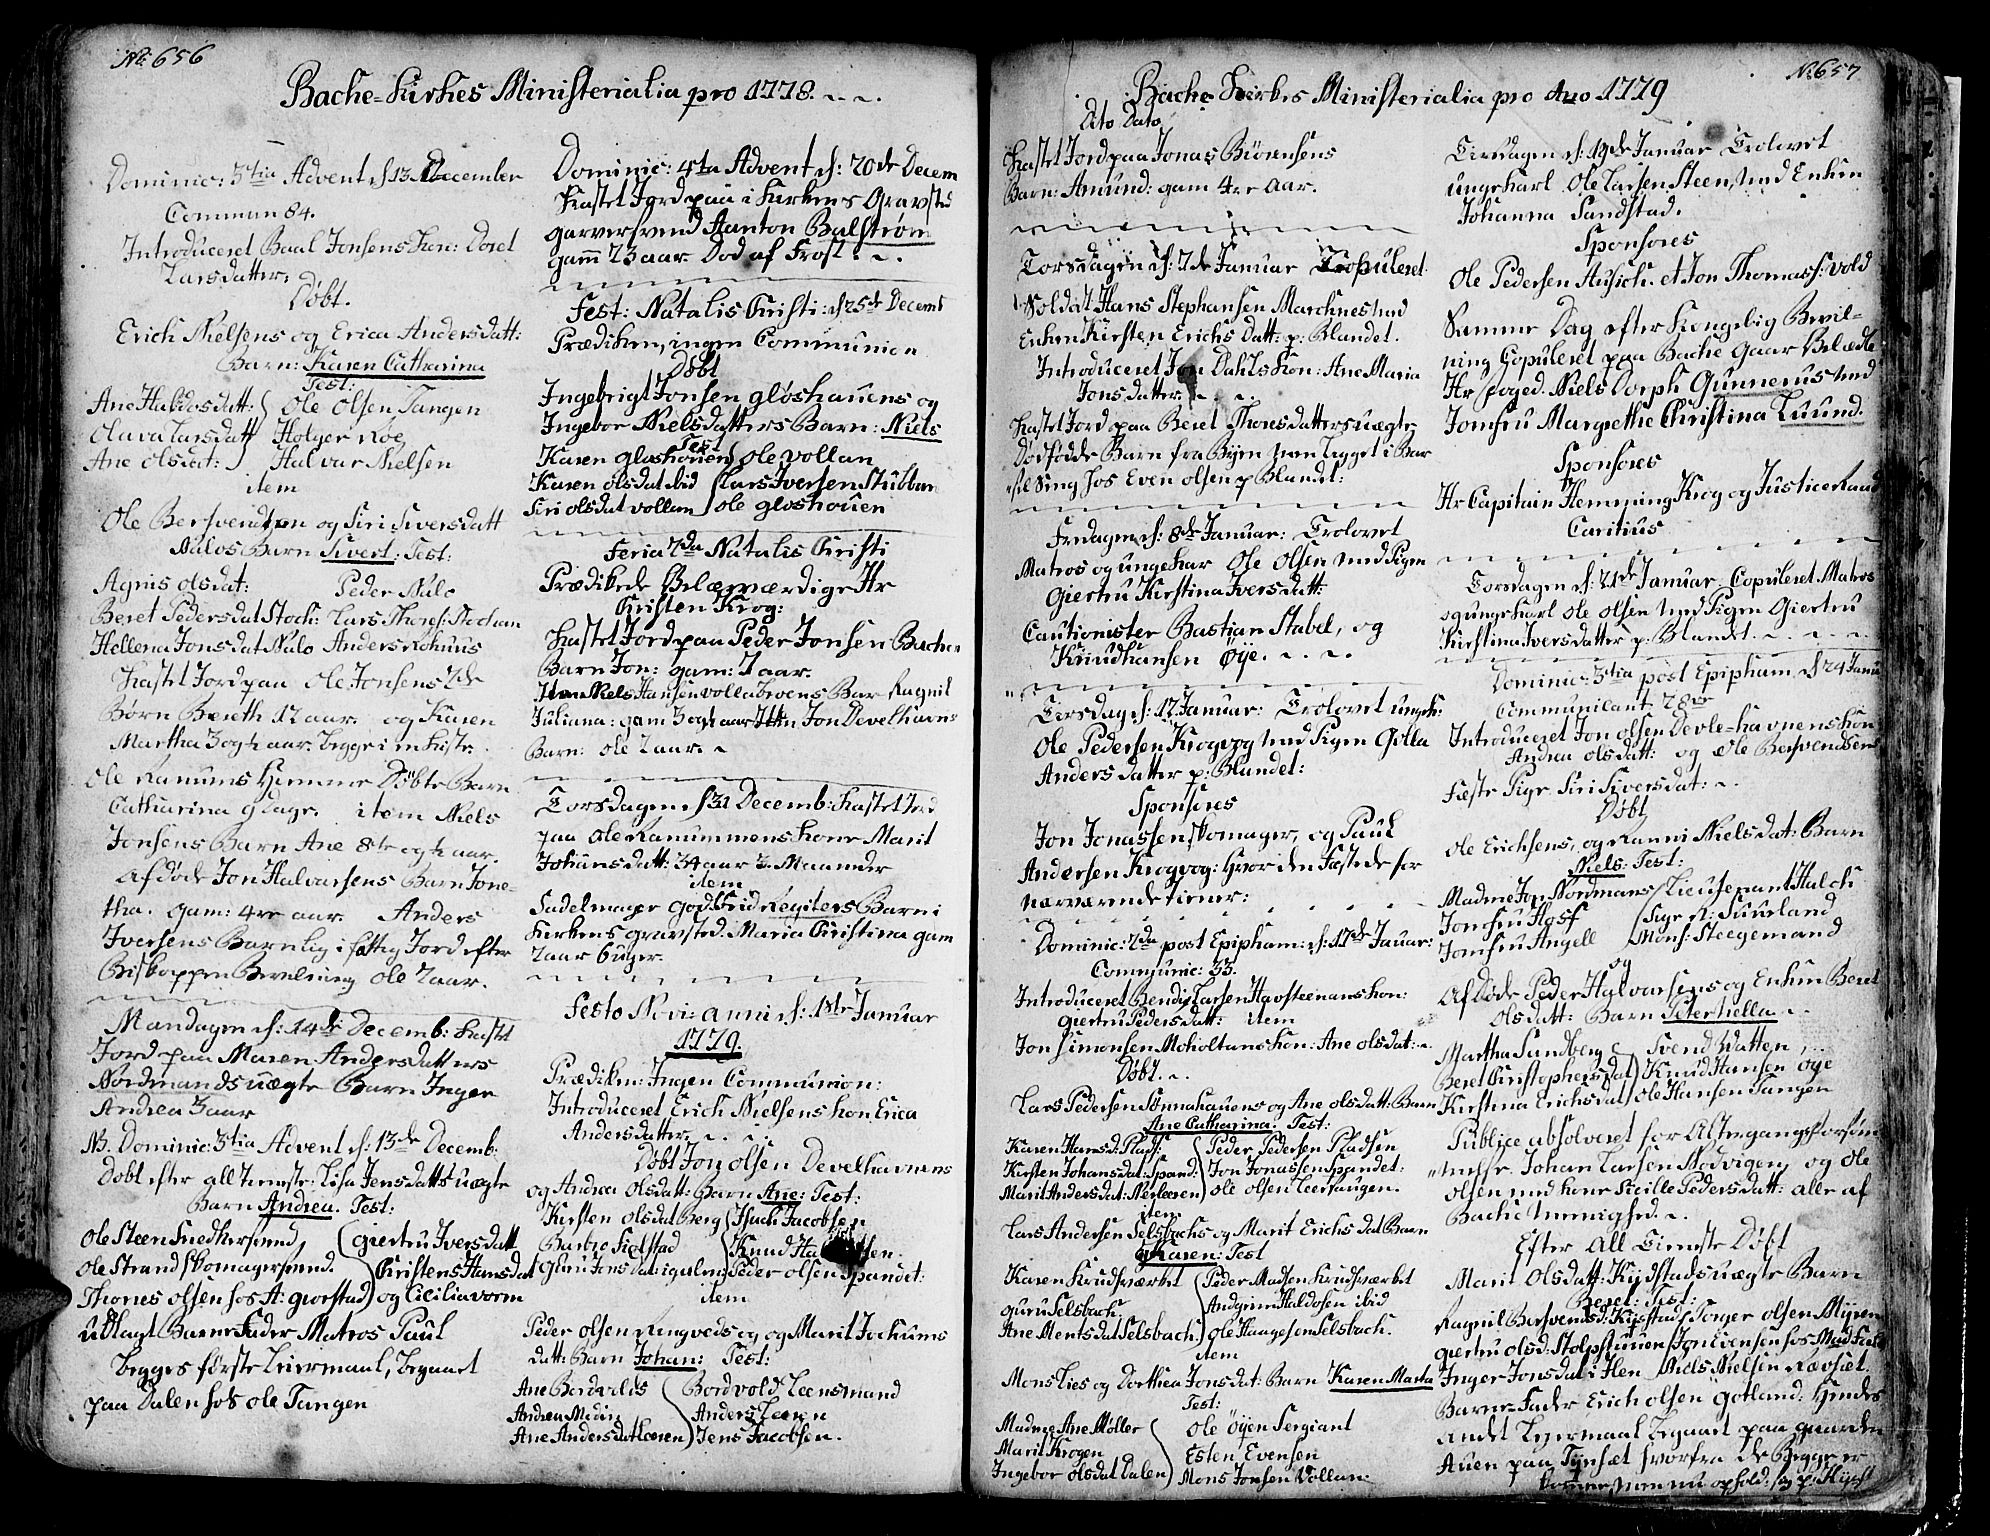 No: 656
Bache-Kirkes Ministerialia pro 1778.
Dominic: 3tia Advent d: 13 December
Commun 84.
Introduceret Baal Jonsens Kon: Doret
Larsdatter:
Døbt.
Erich Nielsens og Erica Andersdatt:
Barn: Karen Catharina
Test:
Ane Haldosdatt: Ole Olsen Tangen
Olava Larsdatt Holger Røe
Ane olsdat: Halvar Nielsen
item
Ole Bersvendsen og Siri Siversdatt
Aalos Barn Sivert: Test:
Agnis olsdat: Peder Aalo
Beret Pedersdat Stoch: Lars Thores: Stochan
Hellena Jonsdat Aalo Anders Rohuus
Kastet Jord paa Ole Jonsens 2de
Børn Bereth 12 aar. og Karen
Martha 3 og ½ aar. begge i en Kiste.
Ole Ramums Hiemme Døbte Barn
Catharina 9 dage. item Niels
Jonsens Barn Ane 8te og ½ aar.
Afdøde Jon Halvarsens Barn Jone-
tha. gam: 4re aar. Anders
Iversens Barnlig i fattig Jord efter
Biskoppen Bevilning Ole 2 aar.
Mandagen d: 14de Decemb: Kastet
Jord paa Maren Andersdatters
Nordmands uægte Barn Inger
Andrea 3 aar
NB. Dominic: 3tia Advent d: 13de Decemb:
Døbt efter all tieneste: Lisa Jensdatts uægte
Barn Andrea. Test:
Ole Steen Snedkersvend, Giertru Iversdatt
Ole Strand Skomagersvend. Christens Hansdat
Thomes olsen hos A: giorstad og Cicilia vorm
Udlagt Barne Fader Matros Paul
begges første Leiermaal, begaaet
paa Dalen hos ole Tangen
Dominic: 4ta Advent d: 20de Decem
Kastet Jord paa i Kirkens Gravsted
garversvend Hanton Balstrøm
gam 23 aar Død af Frost.
Fest: Natalis Christi: d 25de Decemb
Prædiken, ingen Communion
Døbt
Ingebrigt Jonsen gløshauens og
Ingebor Nielsdatters Barn: Niels
Test
Karen gløshouen Ole vollan
Karen olsdat ibid Lars Iversen Stubban
Siri olsdat vollan ole gløshouen
Feria 2da Natalis Christi
Prædikede Velærværdige Hr
Christen Krog:
Kastet Jord paa Peder Jonsen Bachen
Barn Jon: gam: 2 aar.
Item Niels Hansen vollatrøens Bar Ragnil
Juliana: gam 3 og ½ aar Item Jon Develhavns
Barn: Ole 2 aar.
Torsdagen d 31 Decemb: Kastet Jord
paa Ole Ramummens Kone Marit
Johansdatt: 34 aar 3 Maaneder
item
Sadelmager Godtfrid Regiters Barn i
Kirkens gravsted. Maria Christina gam
2 aar 6 uger.
Festo Novi: anni d: 1ste Januar
1779.
Prædiken: Ingen Communion:
Introduceret Erich Nielsens kon Erica
Andersdatter.
Døbt Jon olsen Develhavnens
og Andrea Olsdatt: Barn Ane: Test:
Kirsten olsdat Berg Isach Jacobsen
Barbro Fiolstad Knud Ha sen.
Guru Jonsdat: igulen Peder olsen Spandet:
item
Peder olsen Ringveds og og Marit Jochums
datt: Barn Johan: Test:
Ane Bordvolds Bordvold Leensmand
Andrea Meding Anders Leeren
Ane Andersdat Leeren Jens Jacobsen.
No: 657
Bache Kirkes Ministerialia pro Ano 1779
Uto Dato
Kastet Jord paa Jonas Biørnsens
Barn: Amund: gam 4re Aar.
Torsdagen d: 7de Januar Copuleret
Soldat Hans Stephansen Marchnes med
Enken Kirsten Erichs Datt: p: Blandet.
Introduceret Jon Dahls kon: Ane Maria
Jonsdatter
Kastet Jord paa Beret Thoresdatters uægte
Dødfødde Barn fra Byen hven ligget i Bar
sel Seng hos Even olsen p Blandet:
Fredagen d: 8de Januar: Trolovet
Matros og ungekar Ole Olsen med Pigen
Giertru Kirstina Iversdatt:
Cautionister Bastian Stabel, og
Knud hansen Øye.
Tirsdag d: 12 Januar: Trolovet ungk:
Ole Pedersen Krogvog med Pigen Golla
Anders datter p: Blandet:
Sponsores
Jon Jonassen skomager, og Paul
Andersen Krogvog: hvor den Fæstede for
nærværende tiener:
Dominic: 2da post Epipham: d: 17de Januar:
Communic: 33.
Introduceret Bendix Larsen Havsteenans kon:
Giertru Pedersdatt: item
Jon Simonsen Moholtans kon: Ane olsdat:
Døbt.
Lars Pedersen Sønnahauens og Ane olsdatt: Barn
Ane Catharina: Test:
Karen Hansd: Pladsr: Peder Pedersen Pladsen
Kirsten Johansdat: Spand: Jon Jonassen Spandet:
Marit Andersdat: Nerleeren Ole olsen Leerhaugen.
item
Lars Andersen Selsbachs og Marit Erichs dat Barn
Karen: Test
Karen Krudtværket Peder Madsen Krudtværket
guru Selsbach Andgrim Haldosen ibid
Ane Mentsdat Selsbach: Ole Haagesen Selsbach.
item
Mons Lies og Dorthea Jonsdat: Barn Karen Marta
Test:
Madme Ane Møller Ole Øyen Sergiant
Marit Krogen Esten Evensen
Ingebor olsdat Dalen Mons Jonsen Vollan:
Tirsdagen d: 19de Januar Trolovet
ungekarl Ole Larsen Steen, med Enken
Johanna Sandstad.
Sponsores
Ole Pedersen Husich. et Jon Thomass: vold
Samme Dag efter Kongelig Bevil-
ning Copuleret paa Bache Gaar Velædle
Hr Foged Niels Dorph Gunnerus med
Jomfru Margrethe Christina Luund.
Sponsores
Hr Capitain Hemming Krog og Justice Raad
Caritius
Torsdagen d: 21de Januar: Copuleret Matros
og ungekarl Ole Olsen med Pigen Giertru
Kirstina Iversdatter p: Blandet.
Dominic: 3tia post Epipham d 24 Janu
Communicant 28ve
Introduceret Jon olsen Devle-havnens Kon
Andrea olsdatt: og Ole Bersvendsens
Fæste Pige Siri Siversdat:
Døbt
Ole Erichsens og Ranni Nielsdat: Barn
Niels: Test:
Madme Jon Nordmans Lieutenant Halch
Jomfru Hoff Sigr A: Suureland
Jomfru Angell Mons: Steegemand
og
Afdøde Peder Halvarsens og Enken Beret
olsdatt: Barn Petertiella
Martha Sundberg Svend Watten
Beret Christophersdat Knud Hansen Øye
Kirstina Erichsdat Ole Hansen Tangen
Publice absolveret for Altergangs forsøm
melse. Johan Larsen Nodvigen og Ole
olsen med kone Sicille Pedersdatt: alle af
Bache Menighed.
Efter All Tieneste Døbt
Marit Olsdatt: Kystads uægte Barn
Beret: Test:
Ragnil Bersvendsd: Kystad Torger olsen Myren
giertru olsd: Stolpstuuen Jon Evensen hos Mad Falk
Inger Jonsdat i Ilen Niels Nielsen Rævset.
Barne-Fader Erich olsen Gotland: Hendes
Andet Leiermaal begaaet paa gaarden
Auen paa Tynset hvorfra de Begge er